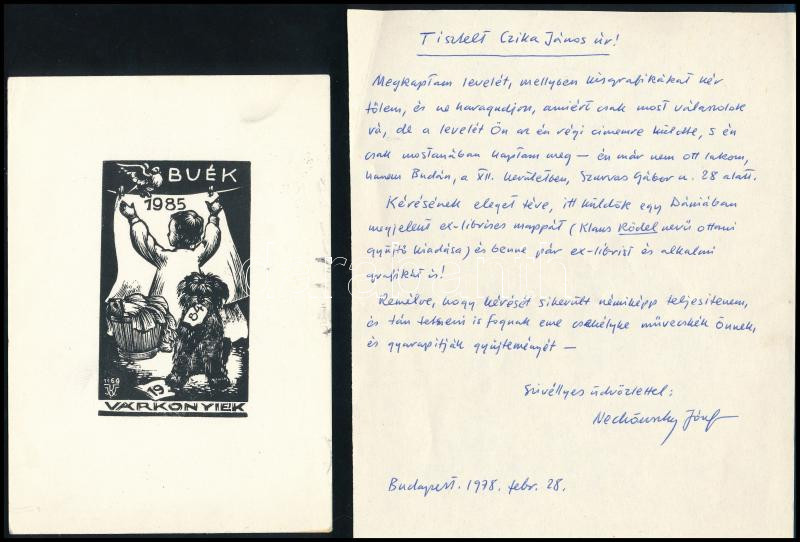 BUÉK
1985
84
19
1168
VÁRKONYIÉK
Tisztelt Czika János úr!
Megkaptam levelét, mellyben kisgrafikákat kér
tőlem, és ne haragudjon, amiért csak most válaszolok
rá, de a levelét Ön az én régi címemre küldte, s én
csak mostanában kaptam meg — én már nem ott lakom,
hanem Budán, a XII. kerületben, Szarvas Gábor u. 28 alatt.
Kérésének eleget téve, itt küldök egy Dániában
megjelent ex-librises mappát (Klaus Rödel nevű ottani
gyűjtő kiadása) és benne pár ex-librist és alkalmi
grafikát is!
Remélve, hogy kérését sikerült némiképp teljesítenem,
és tán tetszeni is fognak eme csekélyke művecskék Önnek,
és gyarapítják gyűjteményét —
Szívélyes üdvözlettel:
József
Budapest. 1978. febr. 28.